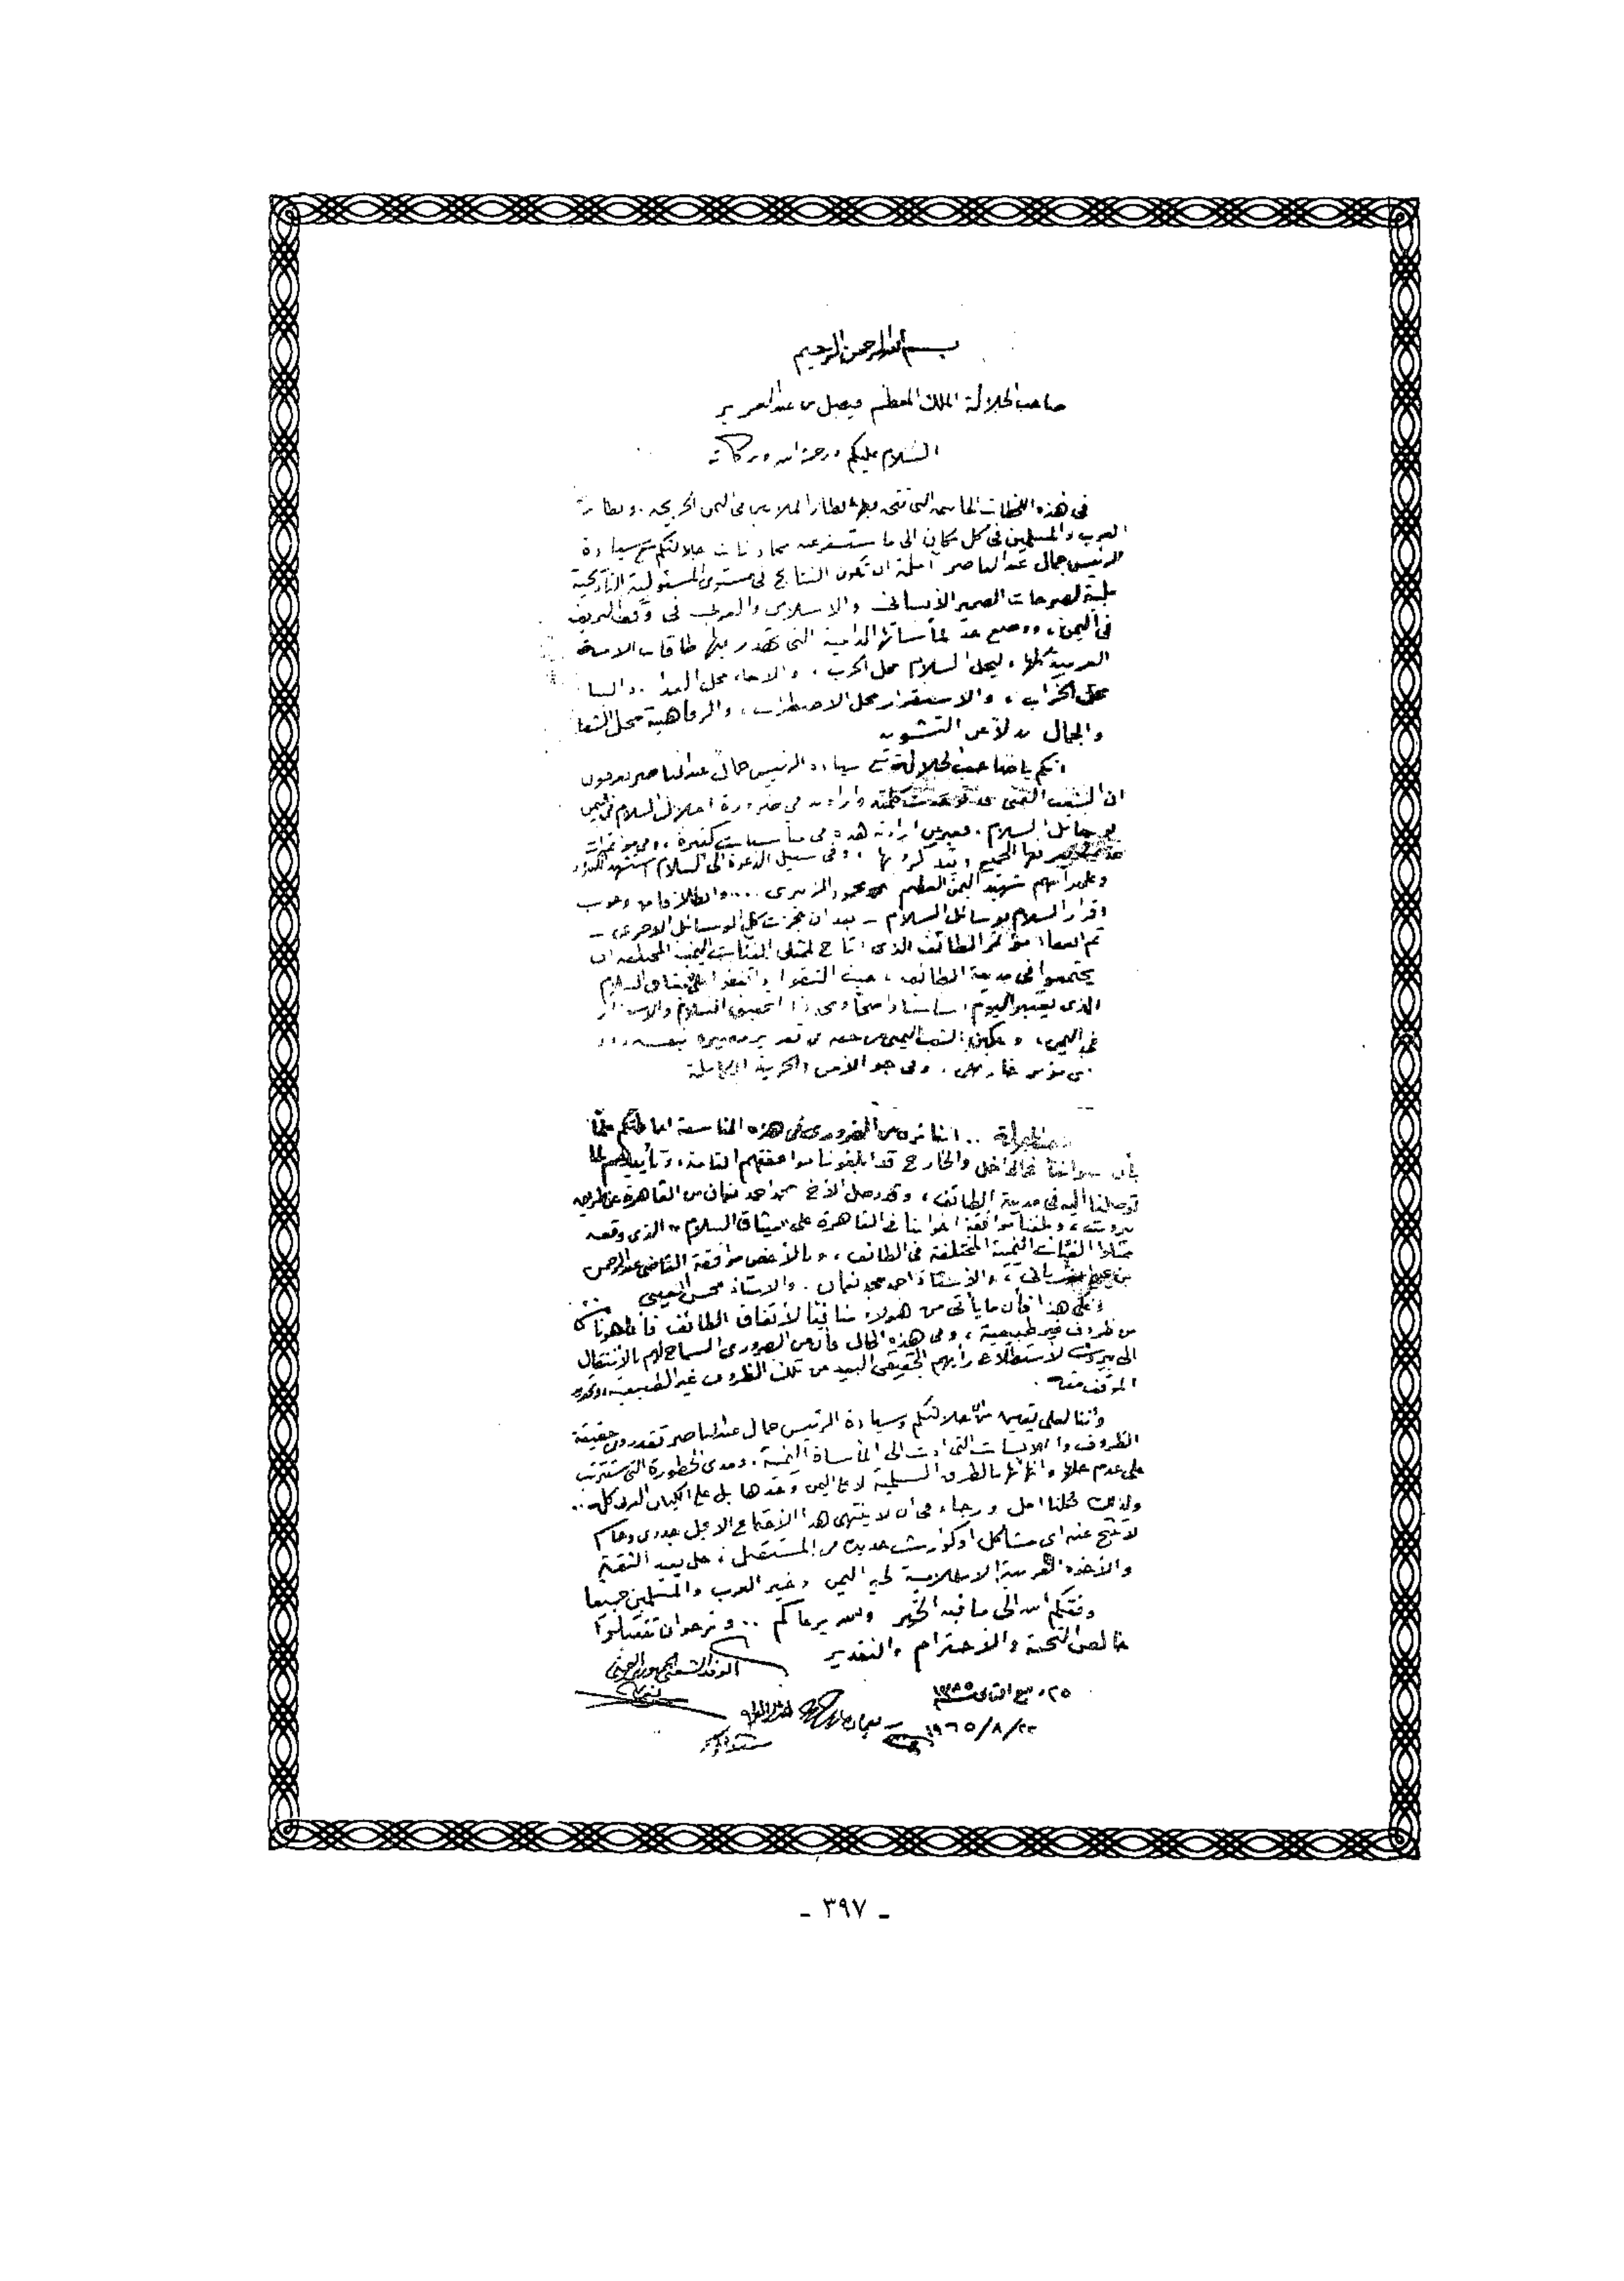 بسم الله الرحمن الرحيم
صاحب الجلالة الملك المعظم فيصل بن عبد العزيز
السلام عليكم ورحمة الله وبركاته
في هذه اللحظات الحاسمة التي تتجه فيها انظار الملايين في اليمن الجريحة . وانظار
العرب والمسلمين في كل مكان الى ما ستسفر عنه محادثات جلالتكم مع سيادة
الرئيس جمال عبد الناصر آملة ان تكون النتائج في مستوى المسئولية التاريخية
ملبية الضمير الانساني والاسلامي والعربي في وقف النزيف
في اليمن ، ووضع حد لمأساتها الدامية التي تهدر فيها طاقات الامة
العربية كلها ، ليحل السلام محل الحرب ، والاخاء محل العداء . والبناء
محل الخراب ، والاستقرار محل الاضطراب ، والرفاهية محل الشقاء
والجمال بدلا عن التشويه
انكم يا صاحب الجلالة مع سيادة الرئيس جمال عبد الناصر تعرفون
ان الشعب اليمني قد توحدت كلمته وارادته في ضرورة احلال السلام في اليمن
بوسائل السلام . ارادته هذه في مناسبات كثيرة ، وفي مؤتمرات
الجميع ، وفي سبيل الدعوة الى السلام استشهد
وعلى رأسهم شهيد اليمن العظيم محمد محمود الزبيري .... وانطلاقا من وجوب
اقرار السلام بوسائل السلام - بعد ان عجزت كل الوسائل الاخرى -
تم انعقاد مؤتمر الطائف الذي اتاح لممثلي الفئات اليمنية المختلفة ان
يجتمعوا في مدينة الطائف ، حيث التقوا واتفقوا على ميثاق السلام
الذي يعتبر اليوم اساسا لتحقيق السلام والاستقرار
في اليمن ، وتمكين الشعب اليمني من حقه في تقرير مصيره بنفسه
، وفي جو الأمن والحرية الكاملة
.. اننا نرى من الضروري في هذه المناسبة احاطتكم علما
بأن في الداخل والخارج قد ابلغونا موافقتهم التامة ، وتأييدهم لما
توصلنا اليه في مدينة الطائف ، وقد وصل الأخ محمد احمد نعمان من القاهرة عن طريق
بيروت ، وابلغنا موافقة اخواننا في القاهرة على "ميثاق السلام" الذي وقعه
الفئات اليمنية المختلفة في الطائف ، وبالأخص موافقة القاضي عبد الرحمن
بن الارياني ، والاستاذ احمد محمد نعمان . والاستاذ محسن العيني
وعلى هذا فأن ما يأتي من هؤلاء منافيا لأتفاق الطائف فأنما هو ناتج
من ظروف غير طبيعية ، وفي هذه الحال فأن من الضروري السماح لهم بالأنتقال
الى بيروت لأستطلاع رأيهم الحقيقي البعيد عن تلك الظروف غير الطبيعية
الموقف منه .
وأننا لعلى يقين من أن جلالتكم وسيادة الرئيس جمال عبد الناصر تقدرون حقيقة
الظروف والملابسات التي ادت الى المأساة اليمنية . ومدى الخطورة التي ستترتب
على عدم حلها وانهائها بالطرق السلمية لا على اليمن وحدها بل على الكيان العربي كله ..
ولذلك فكلنا امل ورجاء في أن لا ينتهي هذا الأجتماع الا بحل جدري وحاسم
لا تنتج عنه اي مشاكل او كوارث جديدة في المستقبل ، حل يعيد الثقة
والأخوة العربية الاسلامية لخير اليمن وخير العرب والمسلمين جميعا
وفقكم الله الى ما فيه الخير والله يرعاكم .. ونرجو ان تتفضلوا
خالص التحية والأحترام والتقدير
الوفد الشعبي الجمهوري اليمني
٢٥ ربيع الثاني ١٣٨٥
٢٢/٨/١٩٦٥
- ٣٩٧ -